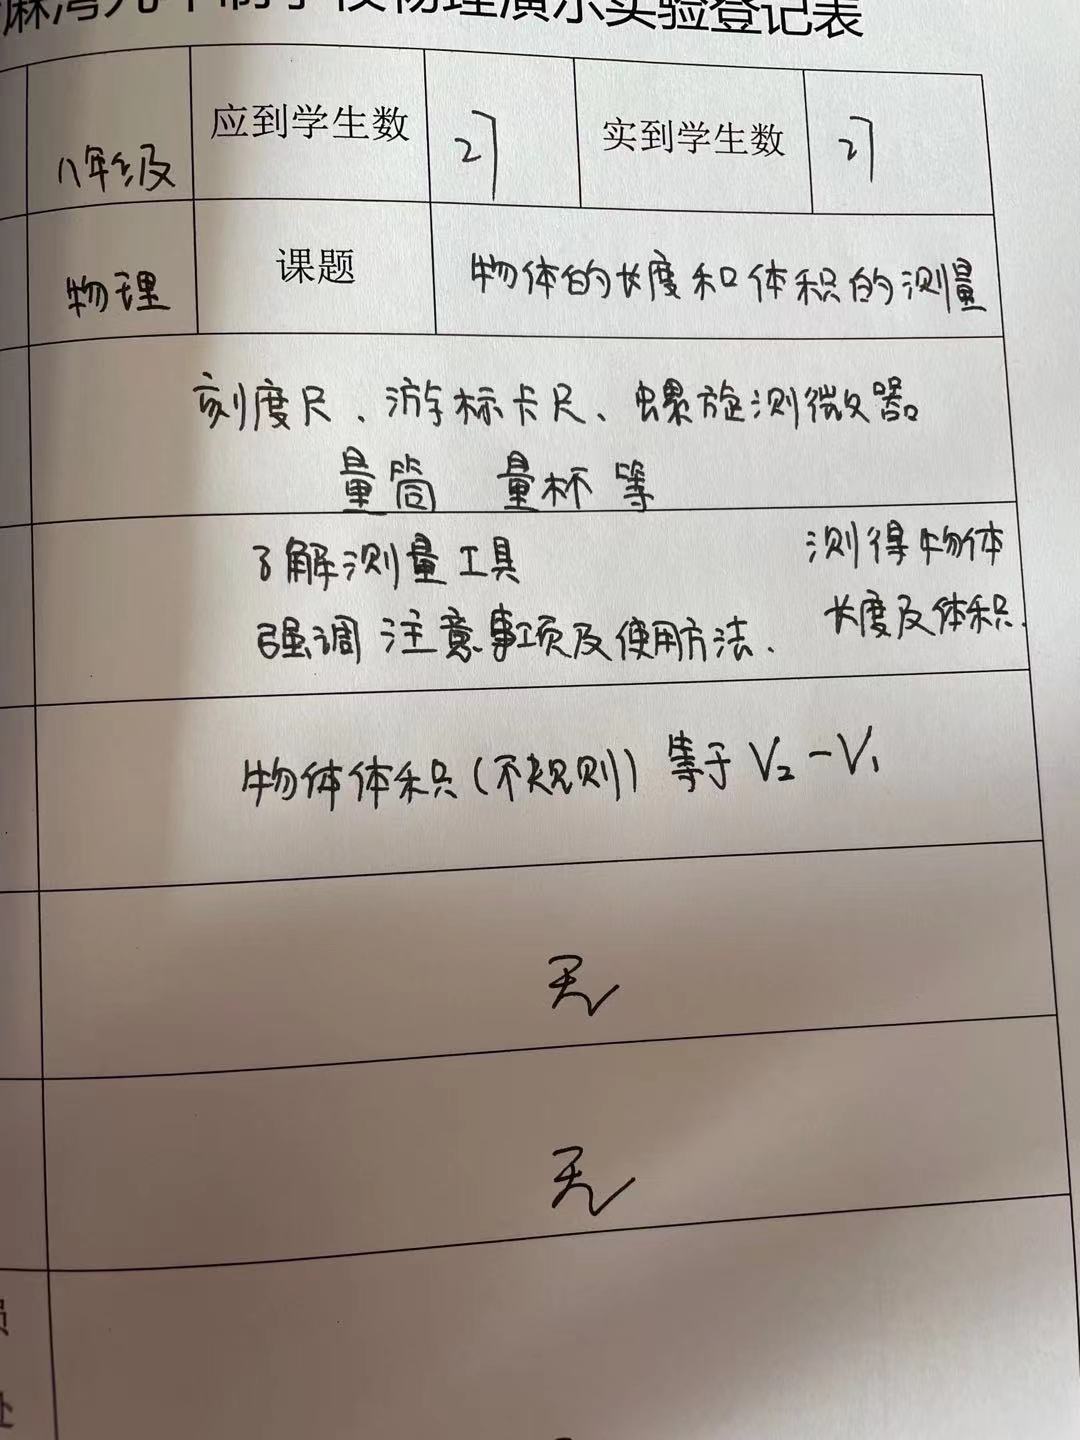 麻湾九年制学校物理演示实验登记表
八年级 应到学生数 27 实到学生数 27
物理 课题 物体的长度和体积的测量
刻度尺、游标卡尺、螺旋测微器
量筒 量杯 等
了解测量工具 测得物体
强调 注意事项及使用方法. 长度及体积.
物体体积(不规则) 等于 V₂-V₁
无
无
员
处